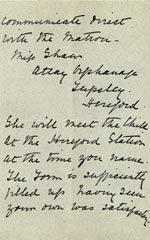 communicate direct
with the Matron -
Miss Shaw
Orphanage
Tupsley.
Hereford.
She will meet the Child
at the Hereford Station
at the time you name.
The Form is sufficiently
filled up having seen
your own was satisfactory